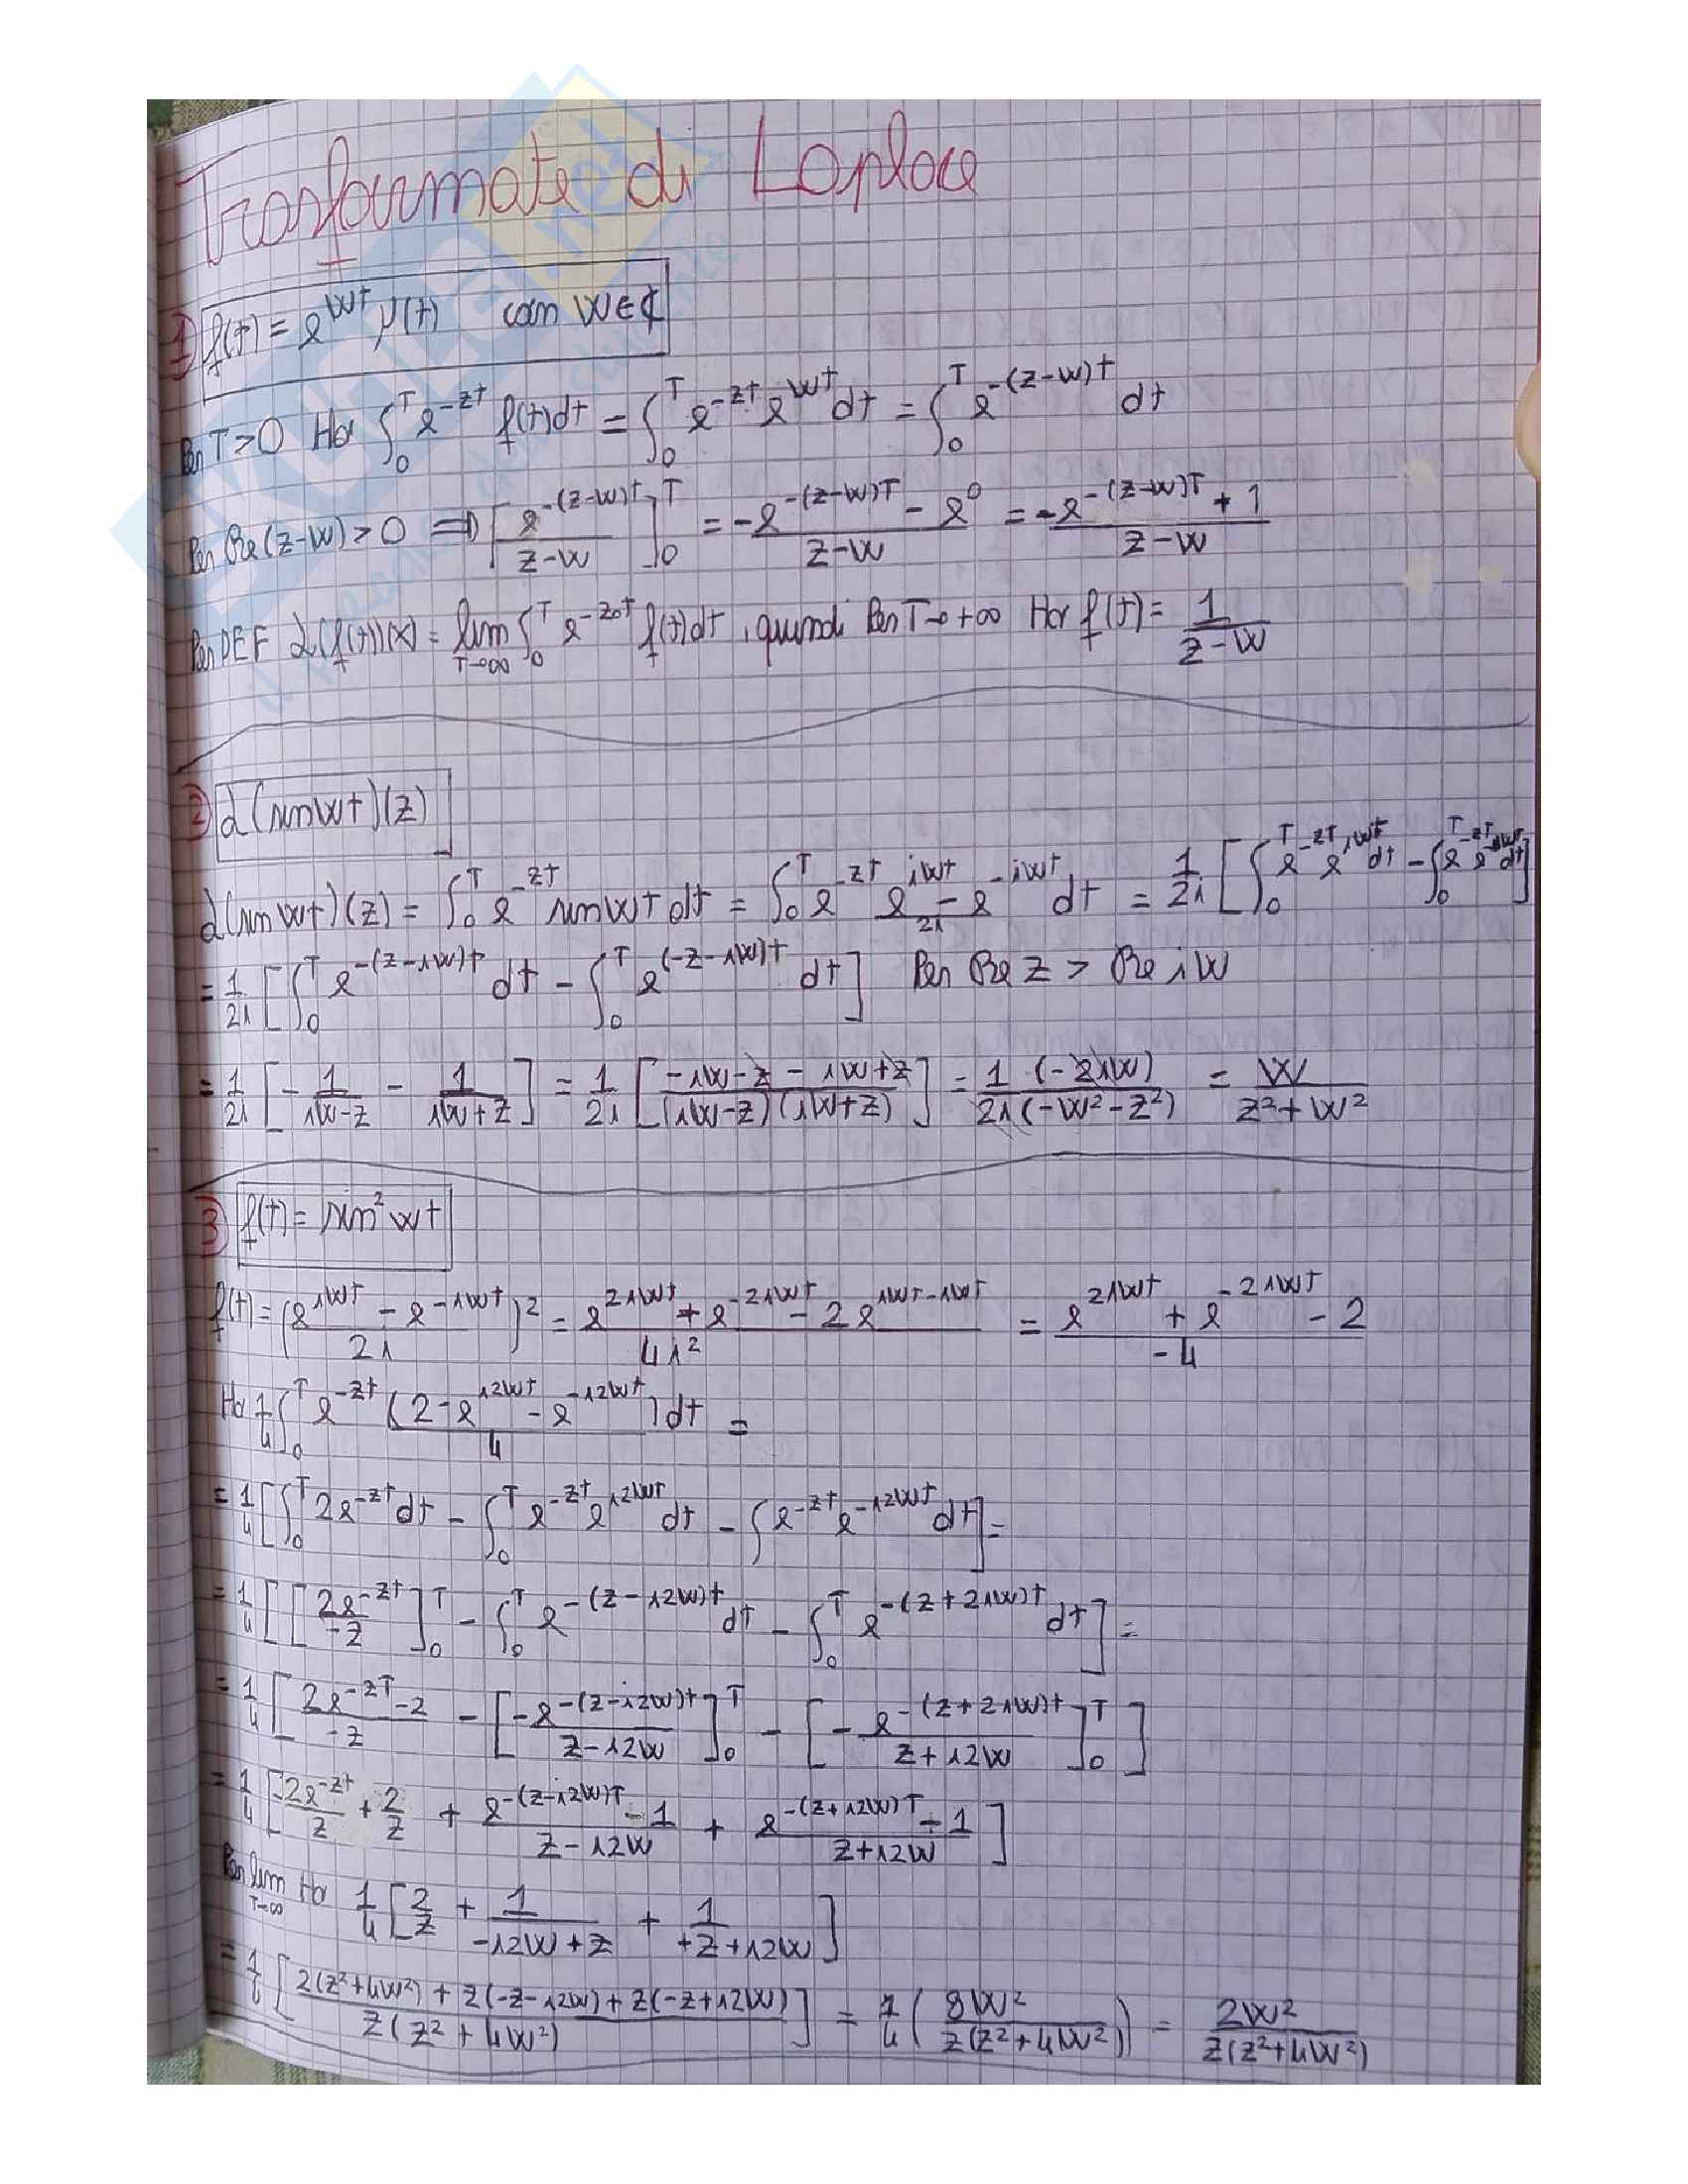 Trasformate di Laplace
1) f(t) = e^{wt} μ(t) con w∈ℂ
Per T>0 Ho ∫_0^T e^{-zt} f(t)dt = ∫_0^T e^{-zt} e^{wt} dt = ∫_0^T e^{-(z-w)t} dt
Per Re(z-w)>0 ⇒ [e^{-(z-w)t}/(z-w)]_0^T = -e^{-(z-w)T} - e^0/(z-w) = (-e^{-(z-w)T} + 1)/(z-w)
Per DEF L(f(t))(x) = lim_{T→∞} ∫_0^T e^{-z_0t} f(t)dt, quindi Per T→+∞ Ho f(t) = 1/(z-w)
2) L(sinwt)(z)
L(sinwt)(z) = ∫_0^T e^{-zt} sinwt dt = ∫_0^T e^{-zt} (e^{iwt} - e^{-iwt})/2i dt = 1/2i [∫_0^T e^{-zt} e^{iwt} dt - ∫_0^T e^{-zt} e^{-iwt} dt]
= 1/2i [∫_0^T e^{-(z-iw)t} dt - ∫_0^T e^{(-z-iw)t} dt] Per Re z > Re iw
= 1/2i [-1/(iw-z) - 1/(iw+z)] = 1/2i [(-iw-z - iw+z)/((iw-z)(iw+z))] = 1/2i (-2iw)/(-w²-z²) = w/(z²+w²)
3) f(t) = sin²wt
f(t) = ((e^{iwt} - e^{-iwt})/2i)² = (e^{2iwt} + e^{-2iwt} - 2e^{iwt-iwt})/4i² = (e^{2iwt} + e^{-2iwt} - 2)/-4
Ho 1/4 ∫_0^T e^{-zt} (2-e^{i2wt} - e^{-i2wt})/4 dt =
= 1/4 [∫_0^T 2e^{-zt} dt - ∫_0^T e^{-zt} e^{i2wt} dt - ∫ e^{-zt} e^{-i2wt} dt] =
= 1/4 [[2e^{-zt}/-z]_0^T - ∫_0^T e^{-(z-i2w)t} dt - ∫_0^T e^{-(z+2iw)t} dt] =
= 1/4 [(2e^{-zT}-2)/-z - [-e^{-(z-i2w)t}/(z-i2w)]_0^T - [-e^{-(z+2iw)t}/(z+i2w)]_0^T]
= 1/4 [-2e^{-zt}/z + 2/z + (e^{-(z-i2w)T} - 1)/(z-i2w) + (e^{-(z+i2w)T} - 1)/(z+i2w)]
Per lim_{T→∞} Ho 1/4 [2/z + 1/(-i2w+z) + 1/(+z+i2w)]
= 1/4 [(2(z²+4w²) + z(-z-i2w) + z(-z+i2w))/(z(z²+4w²))] = 1/4 (8w²/(z(z²+4w²))) = 2w²/(z(z²+4w²))